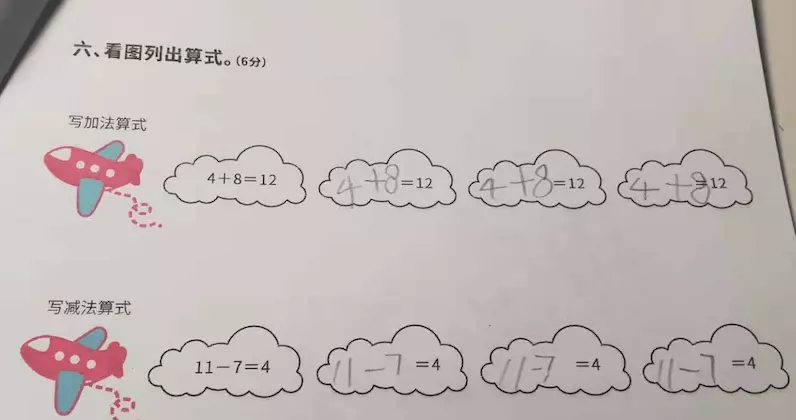 六、看图列出算式。(6分)
写加法算式
4+8=12 4+8=12 4+8=12 4+8=12
写减法算式
11-7=4 11-7=4 11-7=4 11-7=4